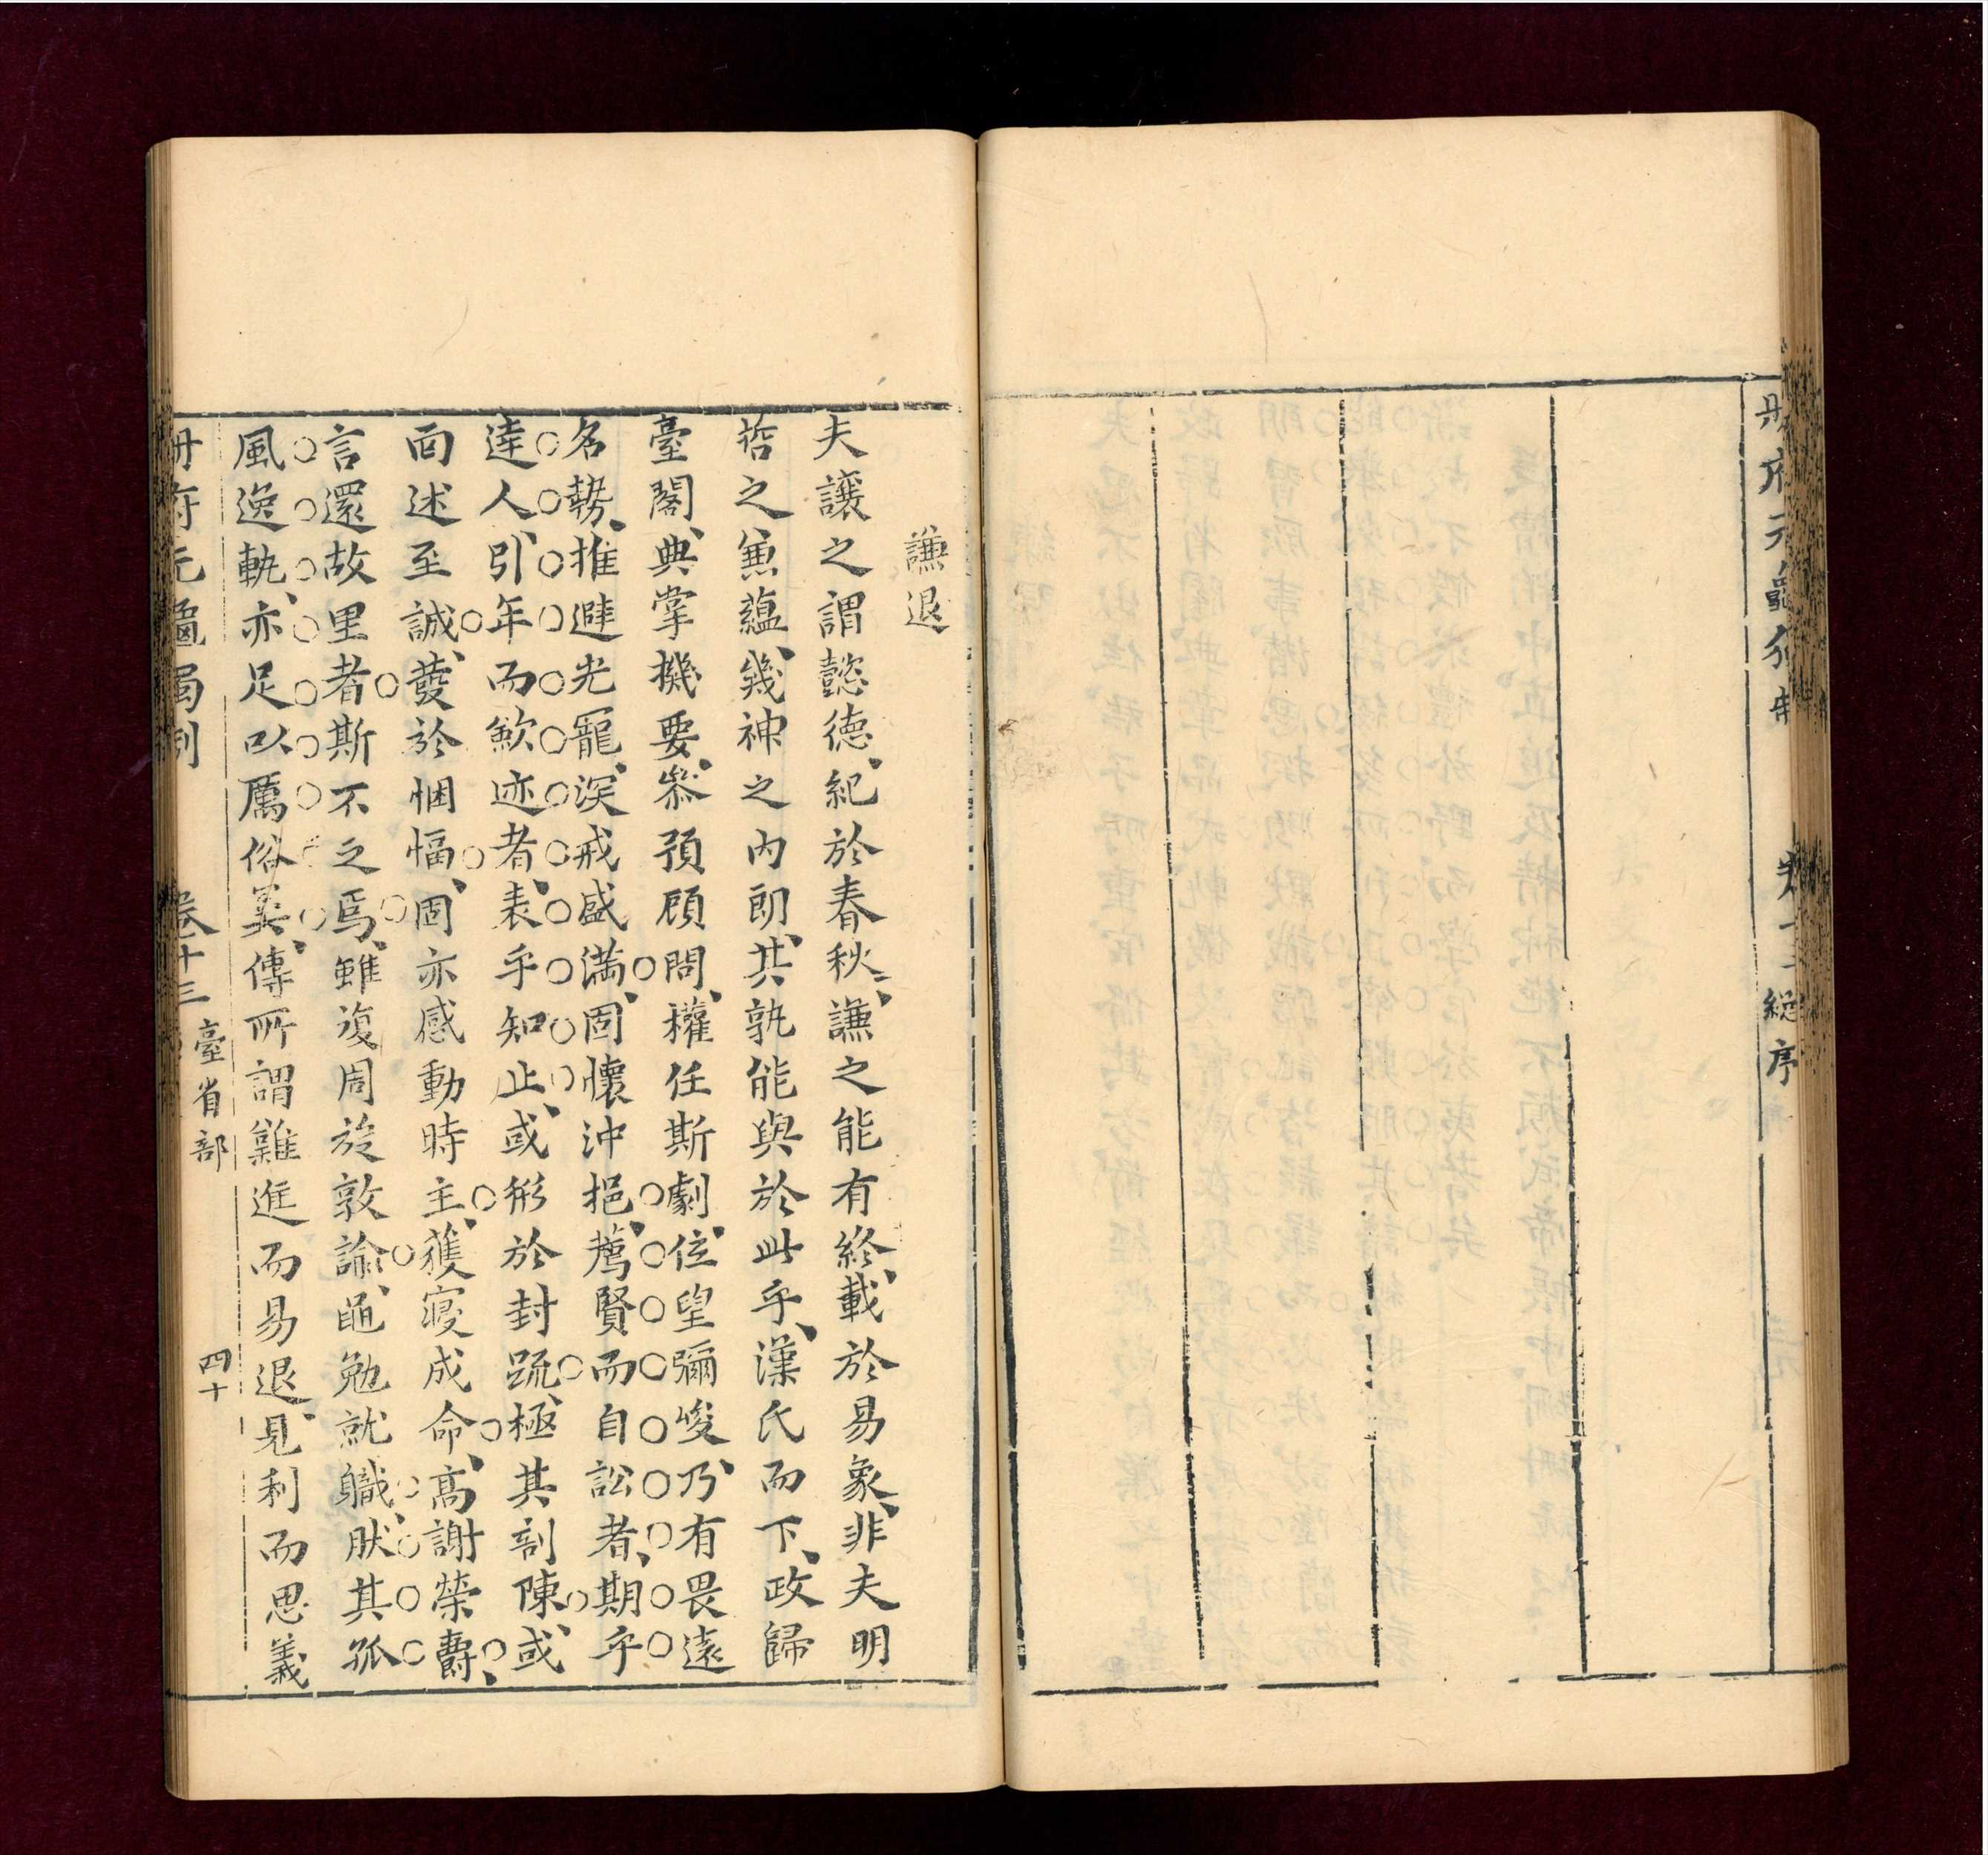 謙退
夫讓之謂懿德紀於春秋謙之能有終載於易象非夫明
哲之兼蘊幾神之內朗其孰能與於此乎漢氏而下政歸
臺閣典掌機要叅預顧問權任斯劇位望彌峻乃有畏遠
名勢推避光寵深戒盛滿固懷沖挹薦賢而自訟者期乎
達人引年而歛迹者表乎知止或形於封疏極其剖陳或
面述至誠發於悃愊固亦感動時主獲寢成命高謝榮爵
言還故里者斯不乏焉雖復周旋敦諭黽勉就職肰其孤
風逸軌亦足以厲俗矣傳所謂難進而易退見利而思義
卷十三
臺省部
四十